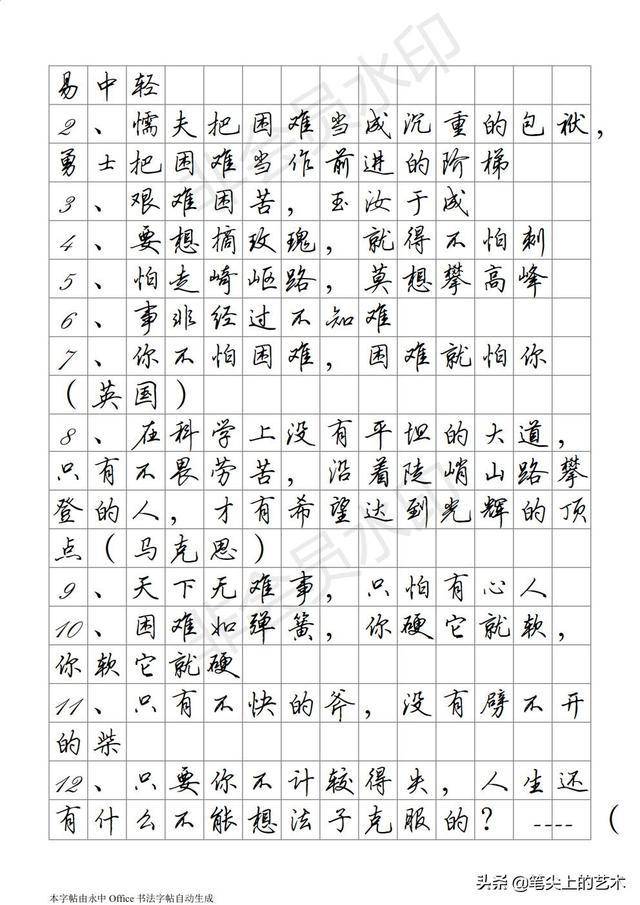 易中轻
2、懦夫把困难当成沉重的包袱，
勇士把困难当作前进的阶梯
3、艰难困苦，玉汝于成
4、要想摘玫瑰，就得不怕刺
5、怕走崎岖路，莫想攀高峰
6、事非经过不知难
7、你不怕困难，困难就怕你
（英国）
8、在科学上没有平坦的大道，
只有不畏劳苦，沿着陡峭山路攀
登的人，才有希望达到光辉的顶
点（马克思）
9、天下无难事，只怕有心人
10、困难如弹簧，你硬它就软，
你软它就硬
11、只有不快的斧，没有劈不开
的柴
12、只要你不计较得失，人生还
有什么不能想法子克服的？ ----（
本字帖由永中Office书法字帖自动生成
头条@笔尖上的艺术
非会员水印
非会员水印